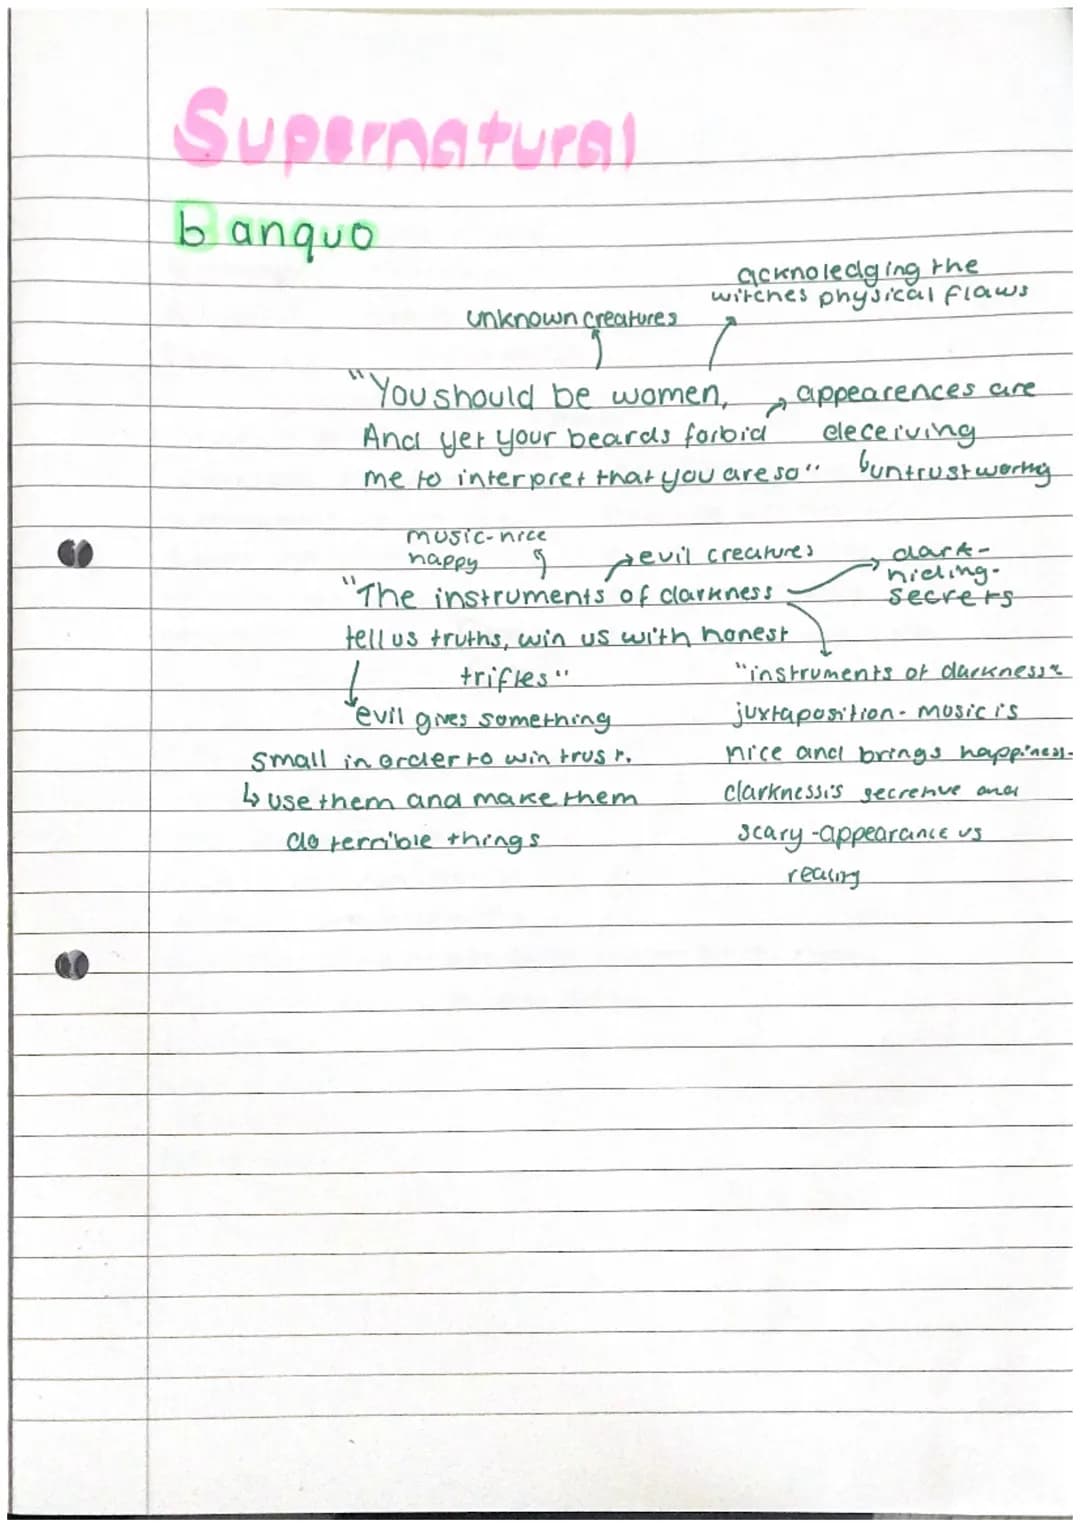 Supernatural
banquo
acknoledging the
witches physical flaws
unknown creatures
"You should be women,
appearences are
And yet your beards forbid
deceiving
me to interpret that you are so"
↳untrustworthy
music-nice
happy
evil creatures
dark-
hiding-
secrets
"The instruments of darkness
tell us truths, win us with honest
trifles"
"instruments of darkness"
evil gives something
juxtaposition- music is
small in order to win trust.
nice and brings happiness-
↳ use them and make them
darkness is secretive and
do terrible things
scary -appearance vs
reality